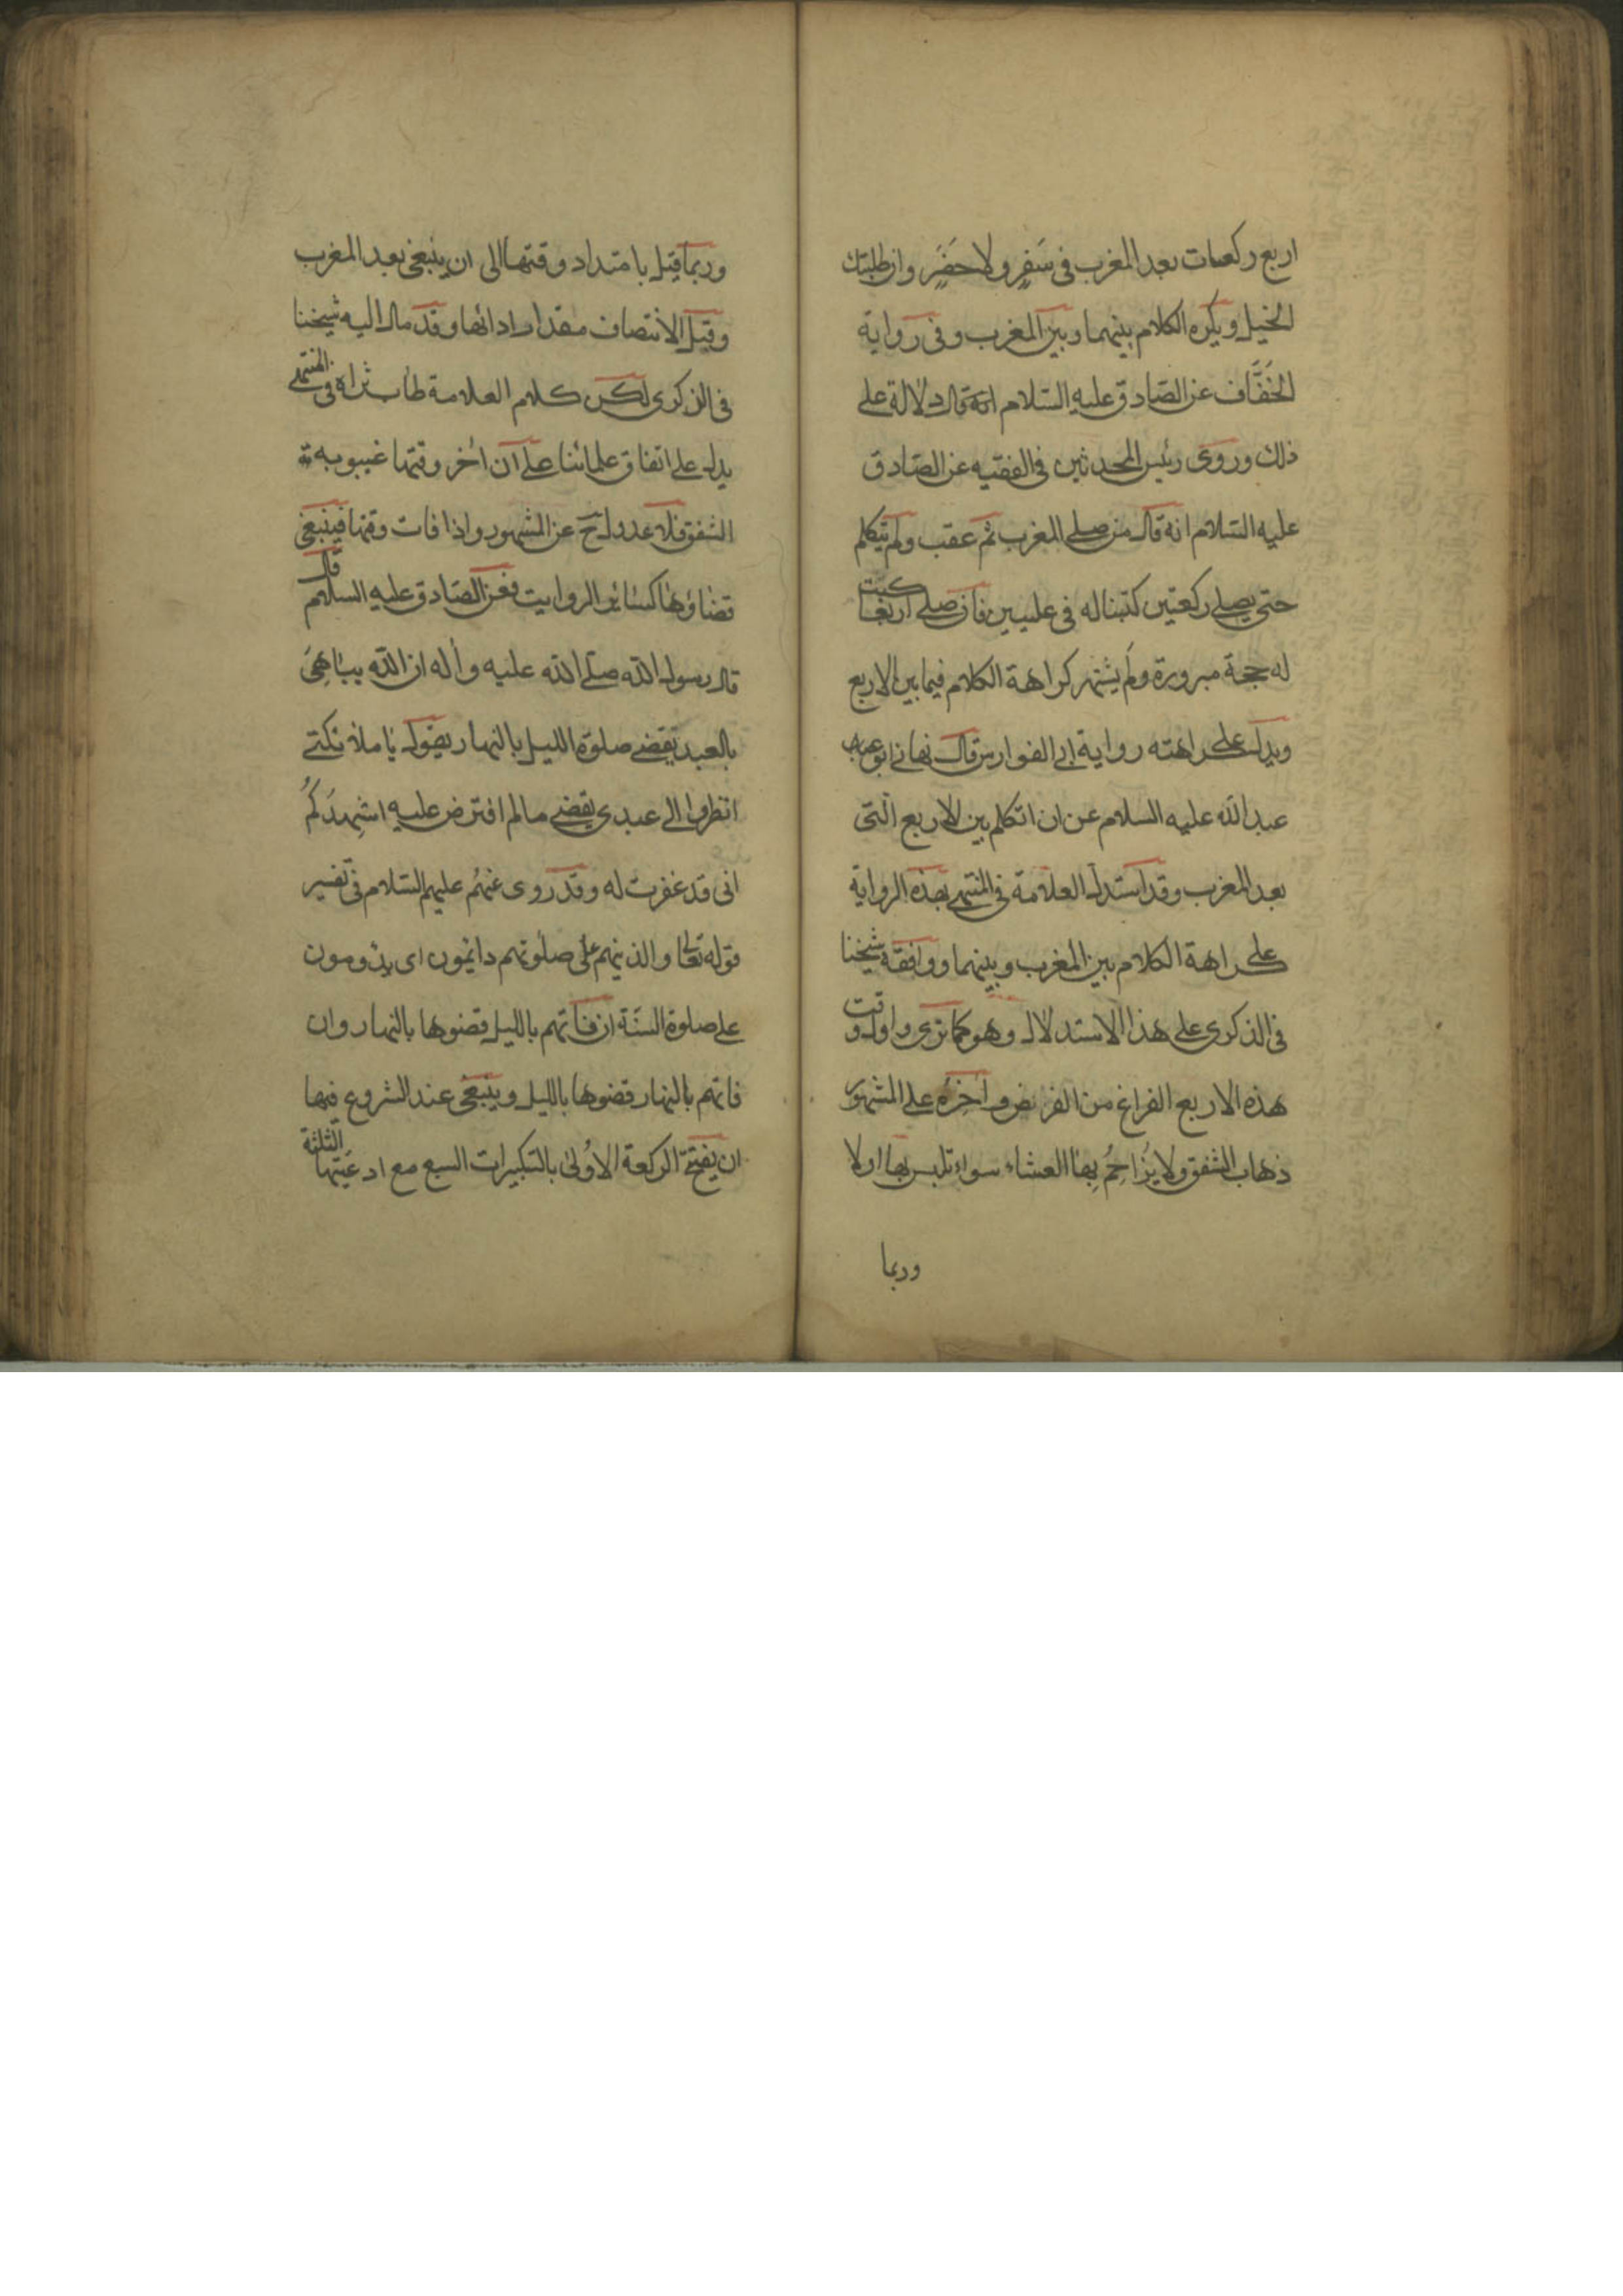 اربع ركعات بعد المغرب فى سَفرٍ ولا حَضَرٍ وان طلبتك
الخيل ويكره الكلام بينهما وبين المغرب وفى رواية
الخَفَّاف عن الصّادق عليه السّلام انه قال دلالة على
ذلك وروى رئيس المحدثين فى الفقيه عن الصّادق
عليه السّلام انه قال من صلى المغرب ثم عقب ولم يتكلم
حتى يصلى ركعتين كتبنا له فى عليين فان صلى اربعًا كتبت
له حجة مبرورة ولم يشتهر كراهة الكلام فيما بين الاربع
ويدل على كراهته رواية ابى الفوارس قال نهانى ابو
عبد الله عليه السلام عن ان اتكلم بين الاربع الّتى
بعد المغرب وقد استدل العلّامة فى المنتهى بهذه الرواية
على كراهة الكلام بين المغرب وبينهما ووافقه شيخنا
فى الذكرى على هذا الاستدلال وهو كما ترى واول وقت
هذه الاربع الفراغ من الفرض وآخره على المشهور
ذهاب الشفق ولا يُزاحِمُ بِهَا العشاء سواء تلبس بها اولا
وربما
وربما قيل بامتداد وقتها الى ان ينبغى بعد المغرب
وقبل الانتصاف مقدار ادائها وقد مال اليه شيخنا
فى الذكرى لكن كلام العلامة طاب ثراه فى المنتهى
يدل على اتفاق علمائنا على ان آخر وقتها غيبوبة
الشفق فلا عدول ح عن المشهور واذا فات وقتها فينبغى
قضاؤها كسائر الرواتب فعن الصّادق عليه السلام قال
قال رسول الله صلى الله عليه وآله ان الله يباهى
بالعبد يقضى صلوة الليل بالنهار يقول يا ملائكتى
انظروا الى عبدى يقضى ما لم افترض عليه اشهِدكُمُ
انى قد غفرت له وقد روى عنهم عليهم السّلام فى تفسير
قوله تعالى والذينهم على صلوتهم دائمون اى يدومون
على صلوة السنّة ان فاتهم بالليل قضوها بالنهار وان
فاتهم بالنهار قضوها بالليل وينبغى عند الشروع فيها
ان يفتتح الركعة الاُولى بالتكبيرات السبع مع ادعيتها الثلثة